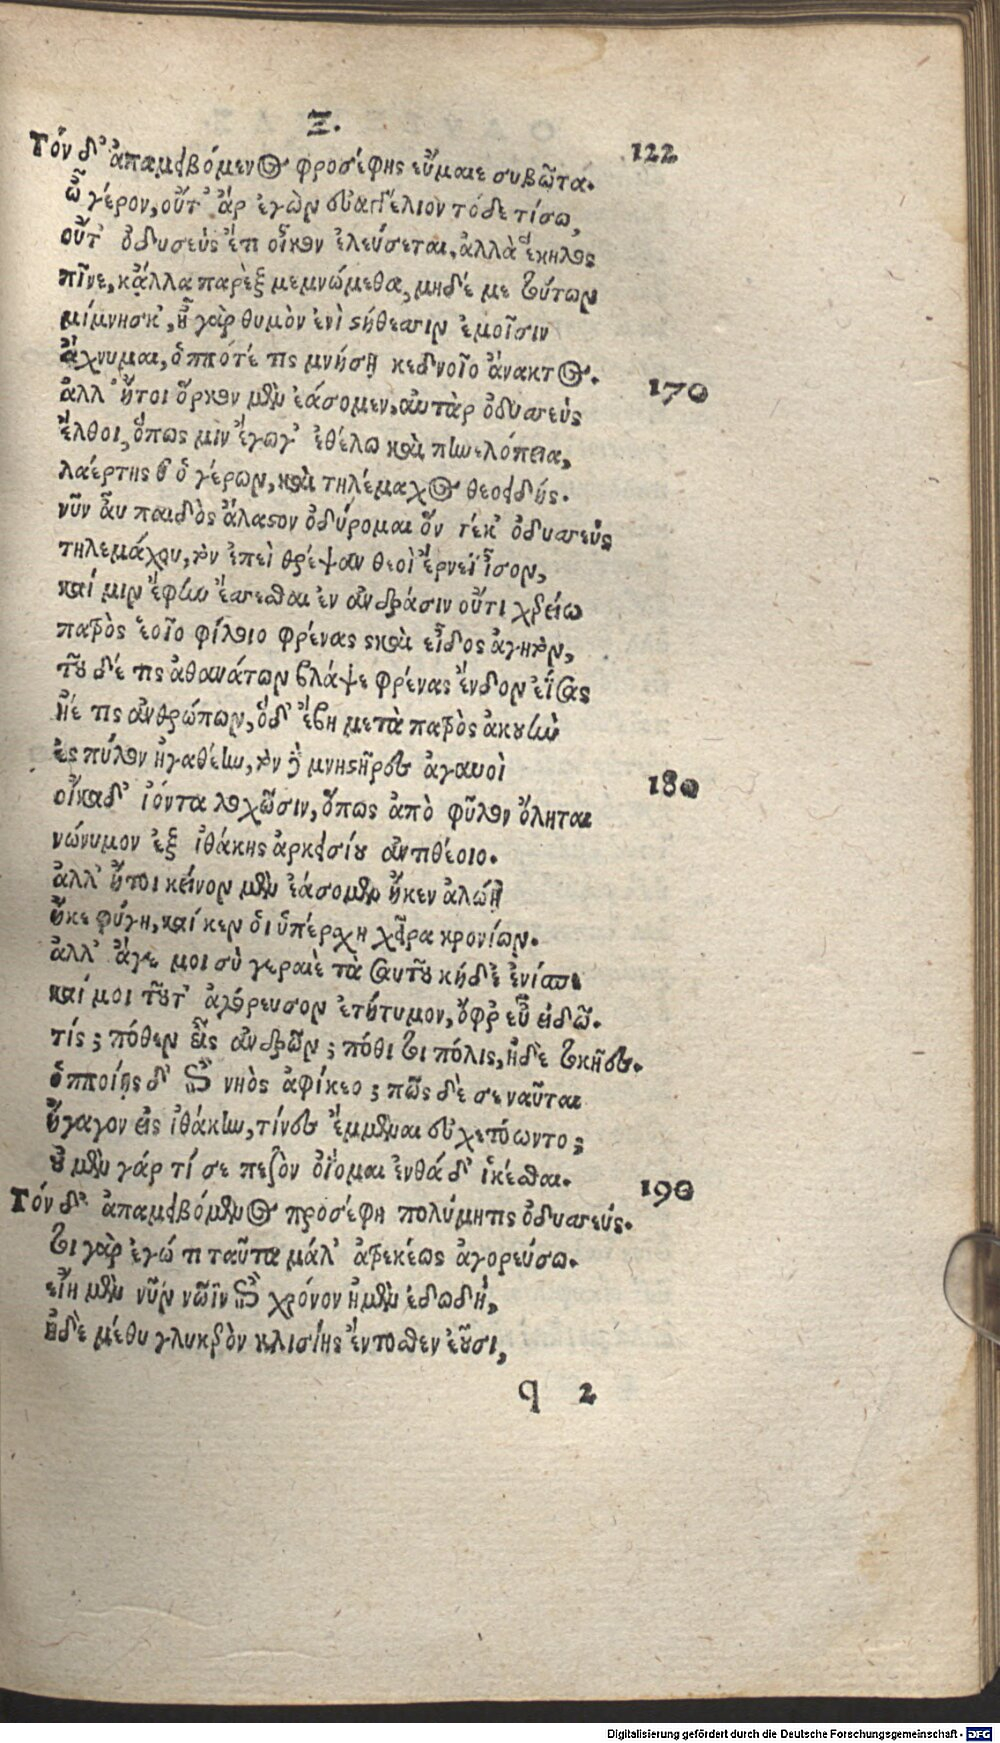 Ξ.
122
Τὸν δ' ἀπαμειβόμενος φροσέφης εὔμαιε συβῶτα.
ὦ γέρον, οὔτ' ἄρ ἐγὼν εὐαγγέλιον τόδε τίσω,
οὔτ' ὀδυσεὺς ἔτι οἶκον ἐλεύσεται. ἀλλὰ ἕκηλος
πῖνε, κᾄλλα παρὲξ μεμνώμεθα, μηδέ με τούτων
μίμνησκ', ἦ γὰρ θυμὸν ἐνὶ στήθεσσιν ἐμοῖσιν
ἄχνυμαι, ὁππότέ τις μνήσῃ κεδνοῖο ἄνακτος.
170
ἀλλ' ἤτοι ὅρκον μὲν ἐάσομεν, αὐτὰρ ὀδυσσεὺς
ἔλθοι, ὅπως μιν ἔγωγ' ἐθέλω καὶ πηνελόπεια,
λαέρτης θ' ὁ γέρων, καὶ τηλέμαχος θεοειδής.
νῦν αὖ παιδὸς ἄλαστον ὀδύρομαι ὃν τέκ' ὀδυσσεὺς
τηλεμάχου, τὸν ἐπεὶ θρέψαν θεοὶ ἔρνεϊ ἶσον,
καί μιν ἔφην ἔσσεσθαι ἐν ἀνδράσιν οὔτι χρείω
πατρὸς ἑοῖο φίλοιο φρένας καὶ εἶδος ἀγητὸν,
τοῦ δέ τις ἀθανάτων βλάψε φρένας ἔνδον ἐΐσας
ἠέ τις ἀνθρώπων, ὅδ' ἔβη μετὰ πατρὸς ἀκουὴν
ἐς πύλον ἠγαθέην, τὸν δὲ μνηστῆρες ἀγαυοὶ
180
οἴκαδ' ἰόντα λοχῶσιν, ὅπως ἀπὸ φῦλον ὄληται
νώνυμον ἐξ ἰθάκης ἀρκεισίου ἀντιθέοιο.
ἀλλ' ἤτοι κεῖνον μὲν ἐάσομεν ἤκεν ἁλώῃ
ἤκε φύγη, καί κεν οἱ ὑπέρσχη χεῖρα κρονίων.
ἀλλ' ἄγε μοι σὺ γεραιὲ τὰ σαυτοῦ κήδε' ἐνίσπε
καί μοι τοῦτ' ἀγόρευσον ἐτήτυμον, ὄφρ' εὖ εἰδῶ.
τίς; πόθεν εἶς ἀνδρῶν; πόθι τοι πόλις, ἠδὲ τοκῆες.
ὁπποίης δ' ἐπὶ νηὸς ἀφίκεο; πῶς δὲ σε ναῦται
ἤγαγον εἰς ἰθάκην, τίνες ἔμμεναι εὐχετόωντο;
οὐ μὲν γάρ τί σε πεζὸν ὀΐομαι ἐνθάδ' ἱκέσθαι.
190
Τὸν δ' ἀπαμειβόμενος προσέφη πολύμητις ὀδυσσεύς.
τοι γὰρ ἐγώ τι ταῦτα μάλ' ἀτρεκέως ἀγορεύσω.
εἴη μὲν νῦν νῶϊν ἐπὶ χρόνον ἠμὲν ἐδωδὴ,
ἠδὲ μέθυ γλυκερὸν κλισίης ἔντοσθεν ἐοῦσι,
q 2
Digitalisierung gefördert durch die Deutsche Forschungsgemeinschaft - DFG